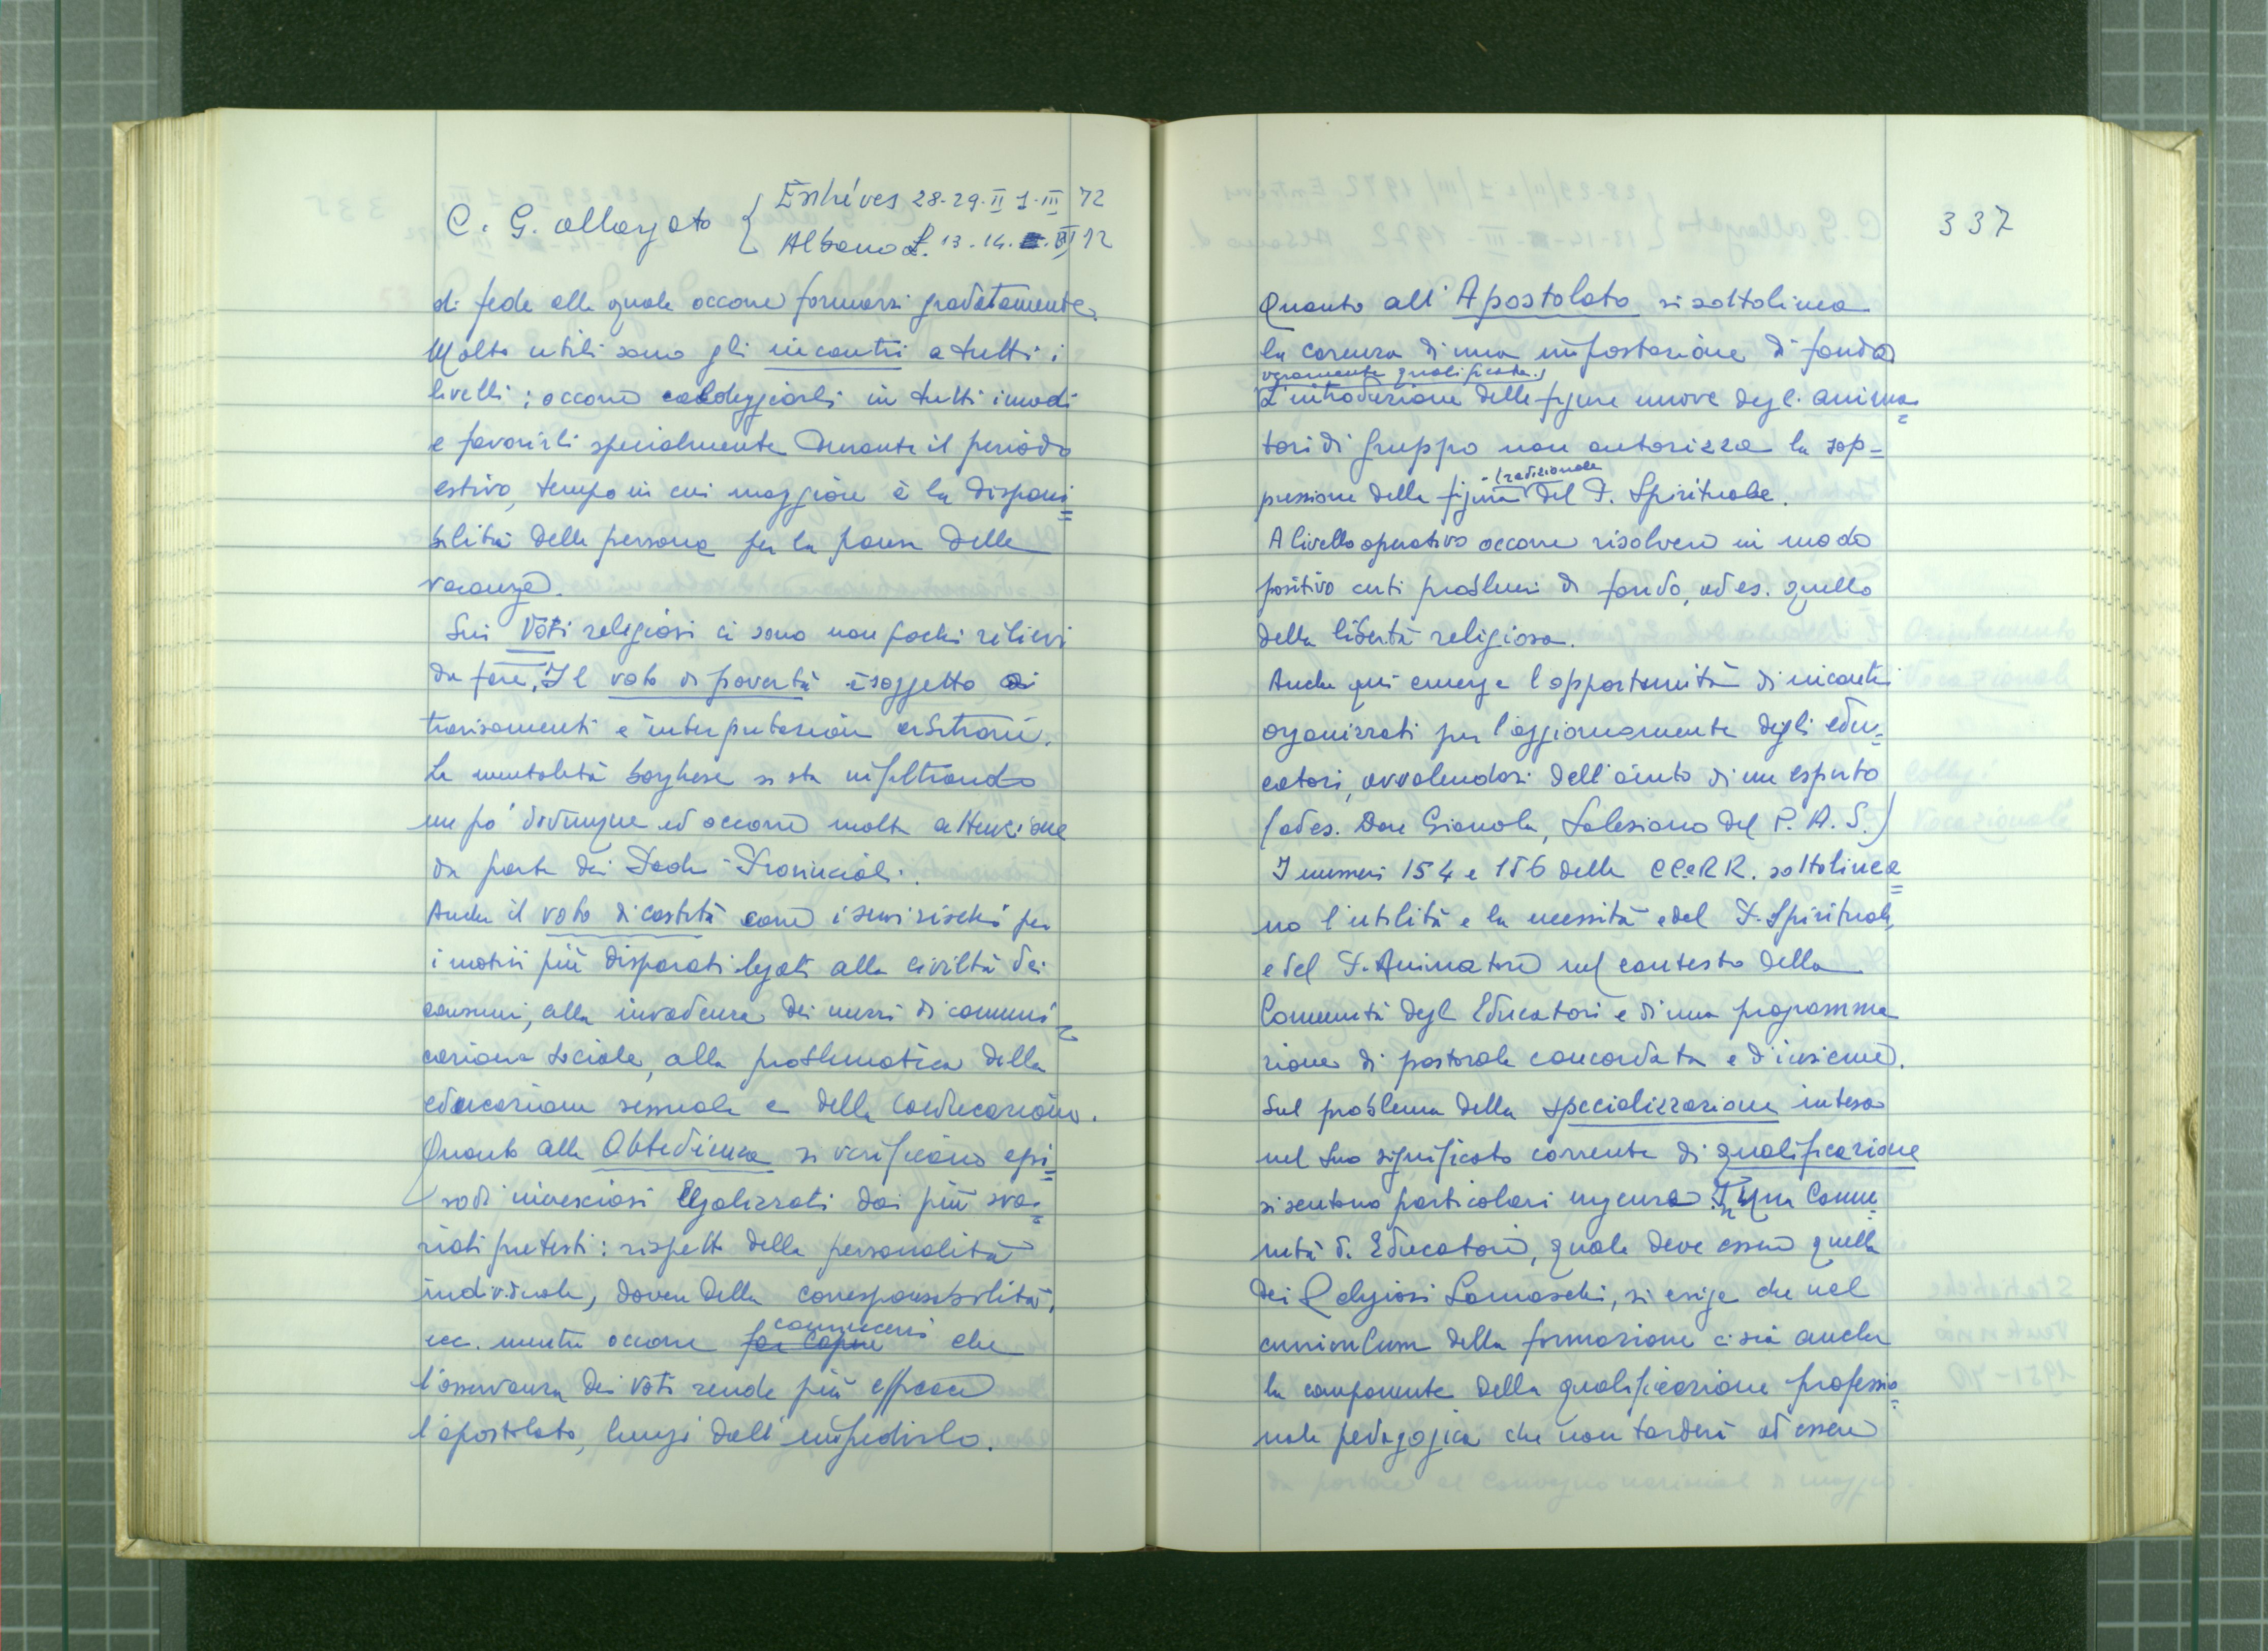 C. G. allargato { Entréves 28-29-II 1-III 72
Albano L. 13-14.III 72
di fede alla quale occorre formarsi gradatamente.
Molto utili sono gli incontri a tutti i
livelli; occorre caldeggiarli in tutti i modi
e favorirli specialmente durante il periodo
estivo, tempo in cui maggiore è la disponi=
bilità delle persone per la pausa delle
vacanze.
Sui Voti religiosi ci sono non pochi rilievi
da fare. Il voto di povertà è soggetto a
travisamenti e interpretazioni arbitrarie.
La mentalità borghese si sta infiltrando
un po' dovunque ed occorre molta attenzione
da parte dei Padri Provinciali.
Anche il voto di castità corre i suoi rischi per
i motivi più disparati legati alla civiltà dei
consumi, alla invadenza dei mezzi di comuni=
cazione sociale, alla problematica della
educazione sessuale e della coeducazione.
Quanto alla Obbedienza si verificano epi=
sodi incresciosi legalizzati dai più sva=
riati pretesti: rispetto della personalità
individuale, dovere della corresponsabilità,
ecc. mentre occorre far capire convincersi che
l'osservanza dei Voti rende più efficace
l'apostolato, lungi dall'impedirlo.
337
Quanto all'Apostolato si sottolinea
la carenza di una impostazione di fondo
veramente qualificata.
L'introduzione delle figure nuove degli anima=
tori di gruppo non autorizza la sop=
pressione della figura tradizionale del P. Spirituale.
A livello operativo occorre risolvere in modo
positivo certi problemi di fondo, ad es. quello
della libertà religiosa.
Anche qui emerge l'opportunità di incontri
organizzati per l'aggiornamento degli edu=
catori, avvalendosi dell'aiuto di un esperto
(ad es. Don Gianola, Salesiano del P. A. S.)
I numeri 154 e 156 delle CC e RR. sottolinea=
no l'utilità e la necessità e del P. Spirituale,
e del P. Animatore nel contesto della
Comunità degli Educatori e di una programma
zione di pastorale concordata e d'insieme.
Sul problema della specializzazione intesa
nel suo significato corrente di qualificazione
si sentono particolari urgenze. In una Comu=
nità di Educatori, quale deve essere quella
dei Religiosi Somaschi, si esige che nel
curriculum della formazione ci sia anche
la componente della qualificazione professio=
nale pedagogica che non tarderà ad essere